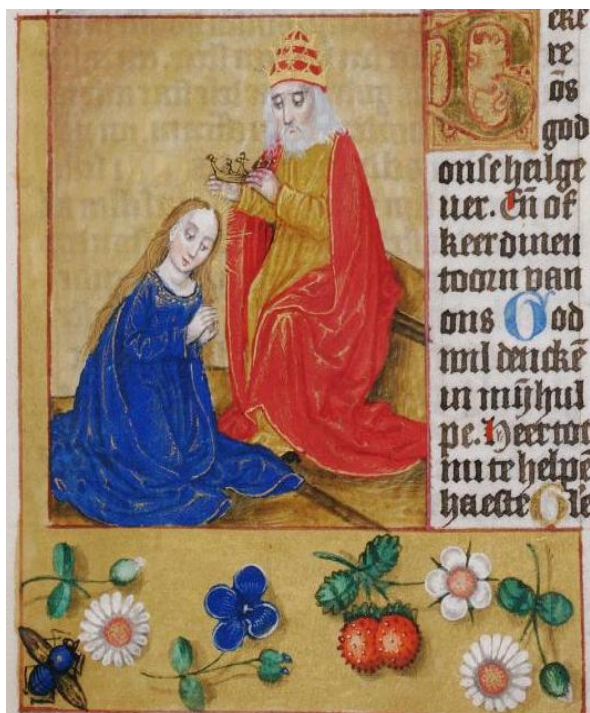 Bekе
re
ōs
god
onse heilge
uer. Eñ of
keer dinen
toorn van
ons God
wil dencke̅
in mijn̅ hul
pe. Heer tot
mi te helpe̅
haeste Gle